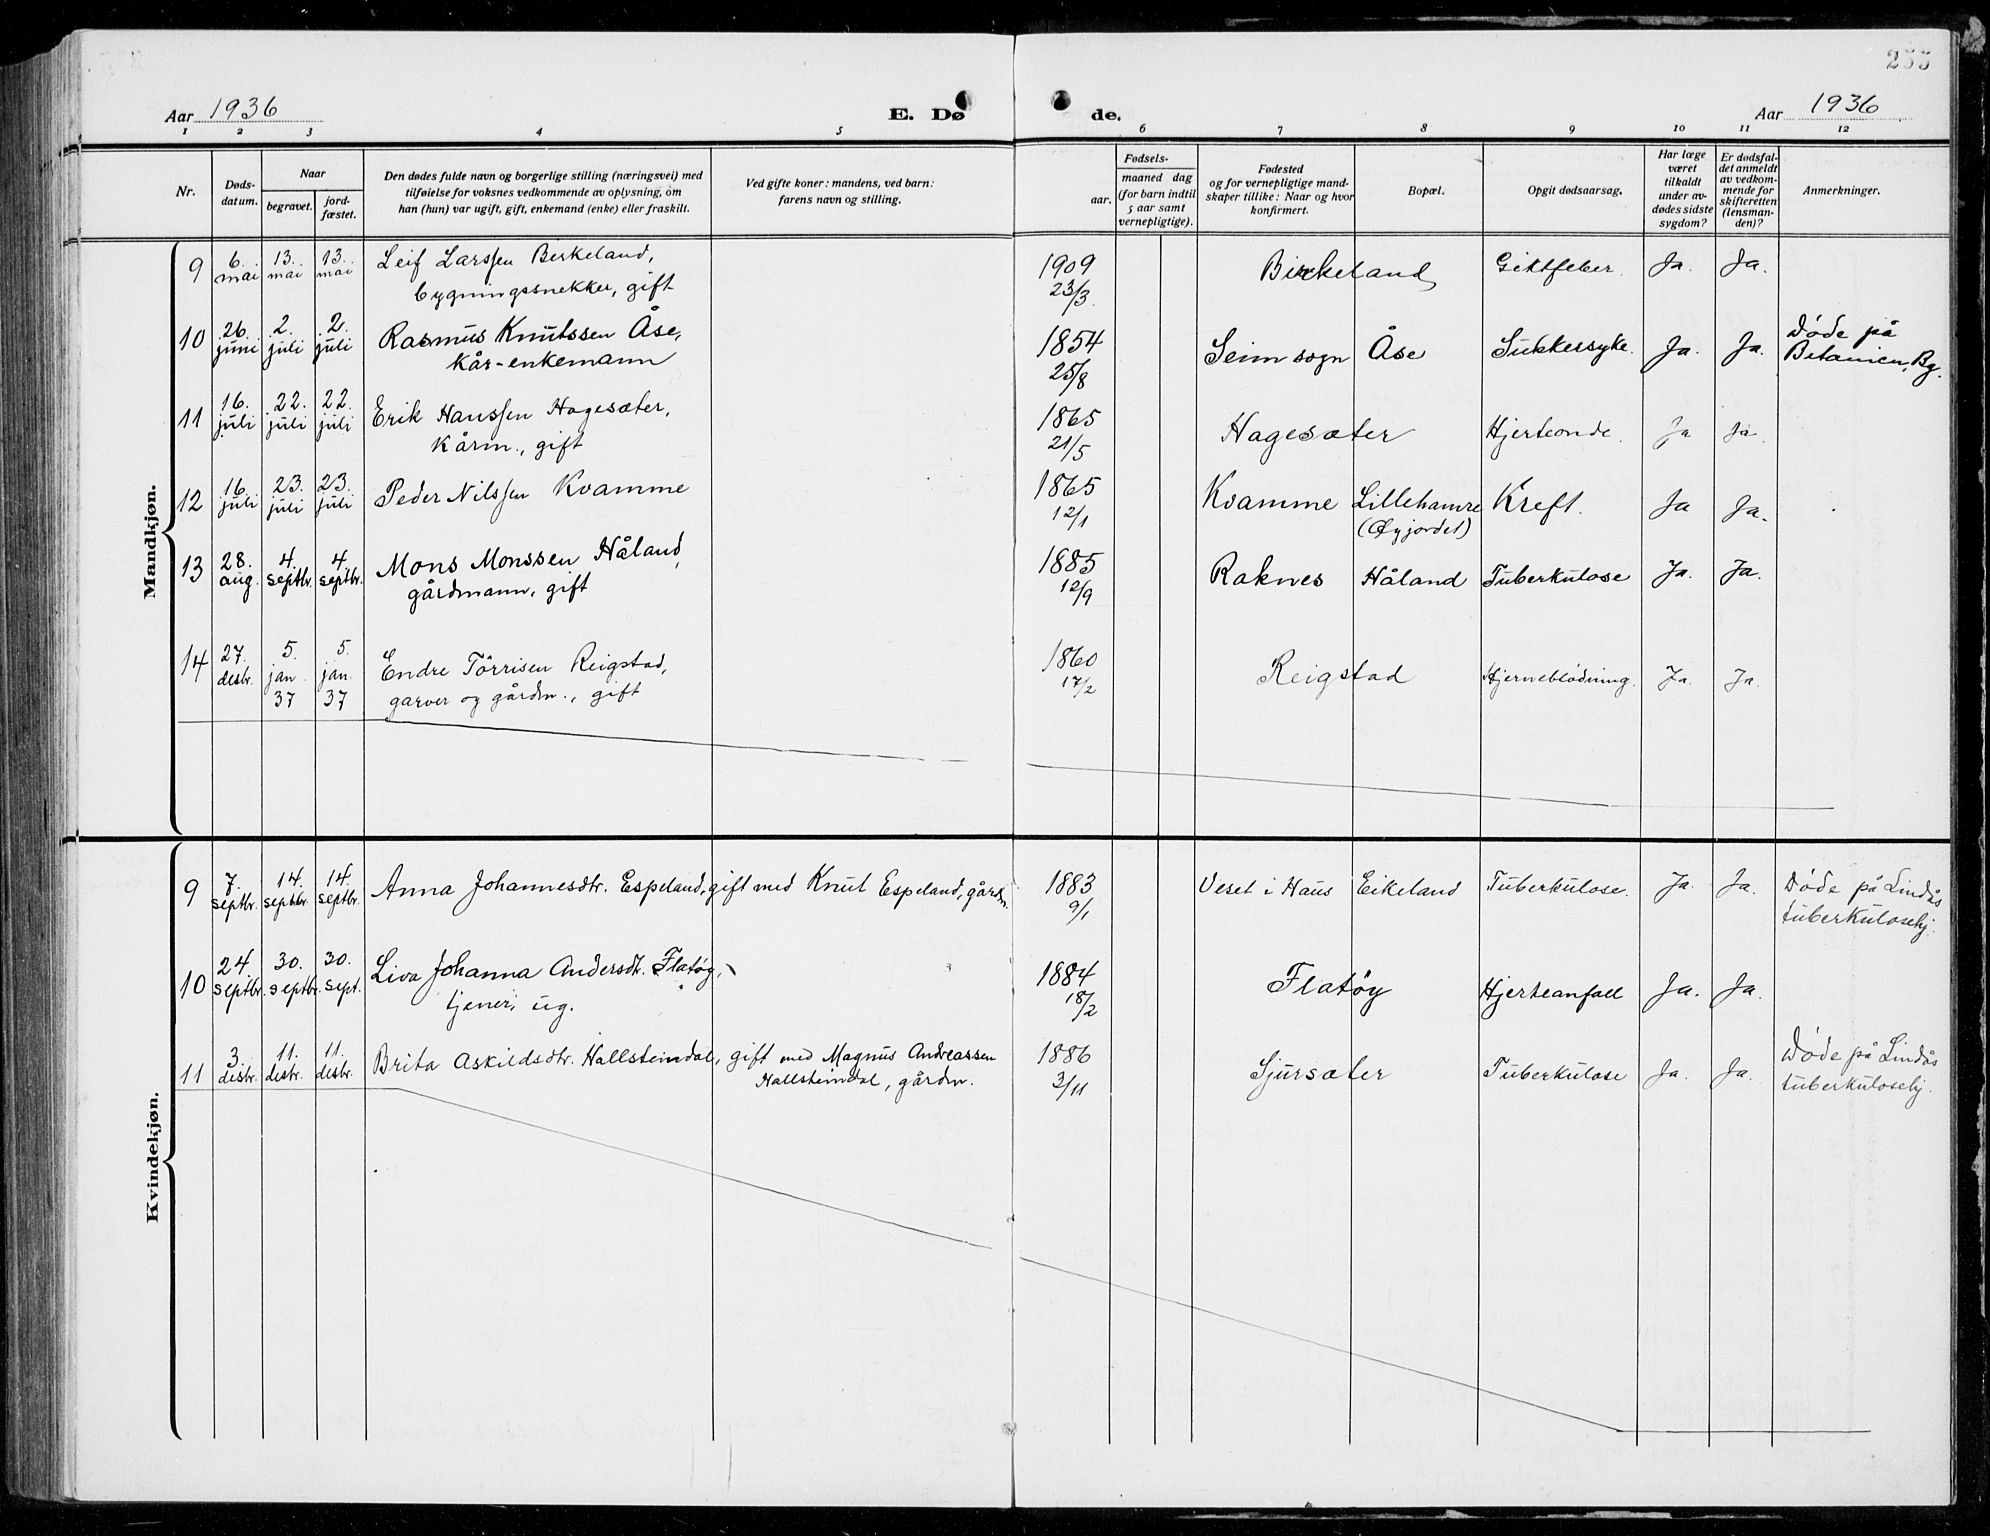 255
Aar 1936
E. Dø
de.
Aar 1936
1 2 3 4 5 6 7 8 9 10 11 12
Nr.
Døds-
datum.
Naar
begravet.
jord-
fæstet.
Den dødes fulde navn og borgerlige stilling (næringsvei) med
tilføielse for voksnes vedkommende av oplysning, om
han (hun) var ugift, gift, enkemand (enke) eller fraskilt.
Ved gifte koner: mandens, ved barn:
farens navn og stilling.
Fødsels-
aar.
maaned dag
(for barn indtil
5 aar samt
vernepligtige).
Fødested
og for vernepligtige mand-
skaper tillike: Naar og hvor
konfirmert.
Bopæl.
Opgit dødsaarsag.
Har læge
været
tilkaldt
under av-
dødes sidste
sygdom?
Er dødsfal-
det anmeldt
av vedkom-
mende for
skifteretten
(lensman-
den)?
Anmerkninger.
Mandkjøn.
9 6. mai 13. mai 13. mai Leif Larssen Berkeland, 1909 Birkeland Giktfeber. Ja. Ja.
bygningssnekker, gift 23/3.
10 26. juni 2. juli 2. juli Rasmus Knutssen Åse, 1854 Seim sogn Åse Sukkersyke. Ja. Ja. Døde på
kår-enkemann 25/8 Betanien, Bg.
11 16. juli 22. juli 22. juli Erik Hanssen Hagesæter, 1865 Hagesæter Hjerteonde. Ja Ja.
kårm., gift 21/5
12 16. juli 23. juli 23. juli Peder Nilssen Kvamme 1865 Kvamme Lillehamre Kreft. Ja Ja.
12/1 (Øyjordet)
13 28. aug. 4. septbr. 4. septbr. Mons Monssen Håland, 1885 Raknes Håland Tuberkulose Ja. Ja.
gårdmann, gift 12/9
14 27. desbr. 5. jan. 37 5. jan. 37 Endre Tørrisen Reigstad, 1860 Reigstad Hjerneblødning. Ja. Ja.
garver og gårdm., gift 17/2
Kvindekjøn.
9 7. septbr. 14. septbr. 14. septbr. Anna Johannesdtr. Espeland, gift med Knut Espeland, gårdm. 1883 Veset i Haus Eikeland Tuberkulose. Ja. Ja. Døde på Lindås
9/1 tuberkulosehj.
10 24. septbr. 30. septbr. 30. sept. Liva Johanna Andersdtr. Flatøy, 1884 Flatøy Hjerteanfall Ja. Ja.
tjener, ug. 18/2
11 3. desbr. 11. desbr. 11. desbr. Brita Askildsdtr. Hallsteindal, gift med Magnus Andreassen 1886 Sjursæter Tuberkulose Ja. Ja. Døde på Lindås
Hallsteindal, gårdm. 3/11 tuberkulosehj.